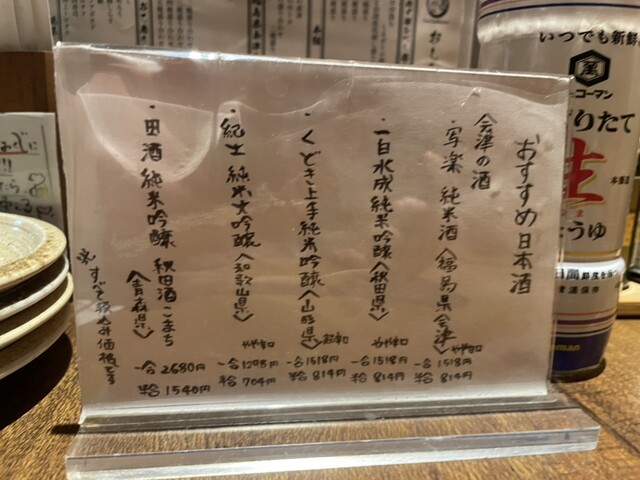 おすすめ日本酒
会津の酒
・写楽 純米酒〈福島県会津〉
やや甘口
一合 1518円
半合 814円
・一白水成 純米吟醸〈秋田県〉
やや辛口
一合 1518円
半合 814円
・くどき上手 純米吟醸〈山形県〉
一合 1518円
半合 814円
・紀土 純米大吟醸〈和歌山県〉
やや辛口
一合 1298円
半合 704円
・田酒 純米吟醸 秋田酒こまち
〈青森県〉
一合 2680円
半合 1540円
※すべて税込み価格です
いつでも新鮮
萬
コーマン
りたて
生
うゆ